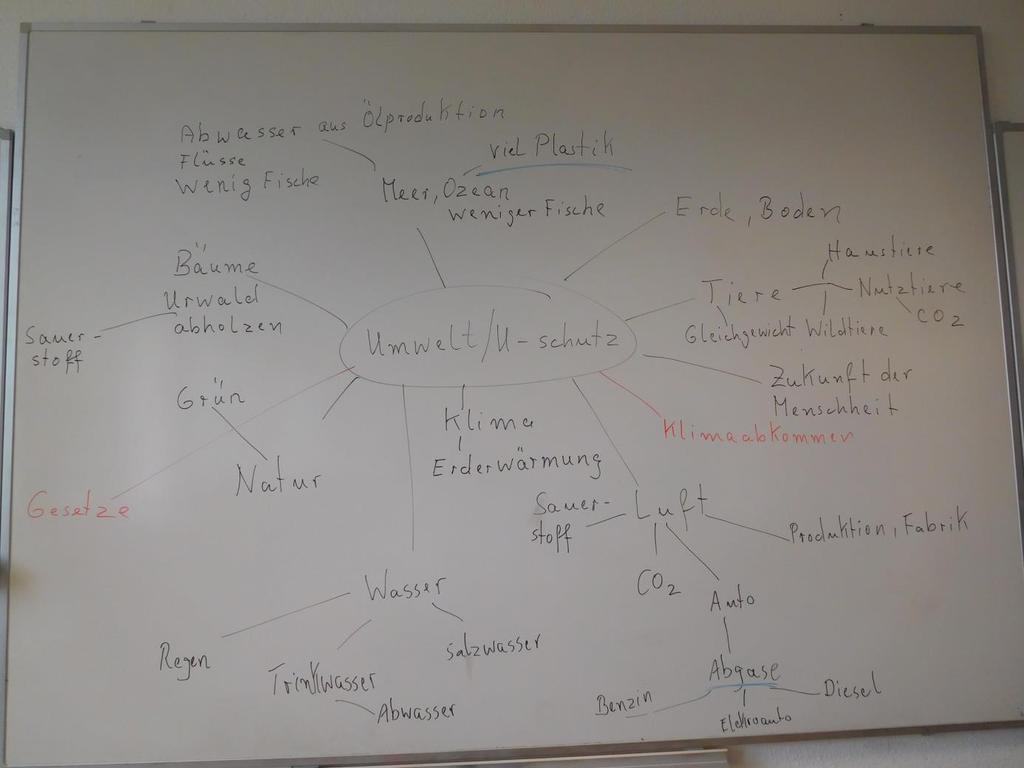 Abwasser aus Ölproduktion
Flüsse
Wenig Fische
viel Plastik
Meer, Ozean
weniger Fische
Erde, Boden
Haustiere
Tiere
Nutztiere
CO2
Gleichgewicht Wildtiere
Bäume
Urwald
abholzen
Sauer-
stoff
Umwelt/U-schutz
Zukunft der
Menschheit
Klimaabkommen
Grün
Natur
Klima
Erderwärmung
Gesetze
Sauer-
stoff
Luft
Produktion, Fabrik
CO2
Auto
Wasser
Regen
Trinkwasser
Salzwasser
Abwasser
Abgase
Benzin
Elektroauto
Diesel